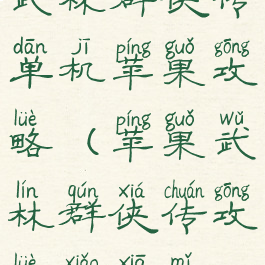 武 林 群 侠 传
dān jī píng guǒ gōng
单 机 苹 果 攻
lüè píng guǒ wǔ
略 ( 苹 果 武
lín qún xiá chuán gōng
林 群 侠 传 攻
lüè xiǎo xiā